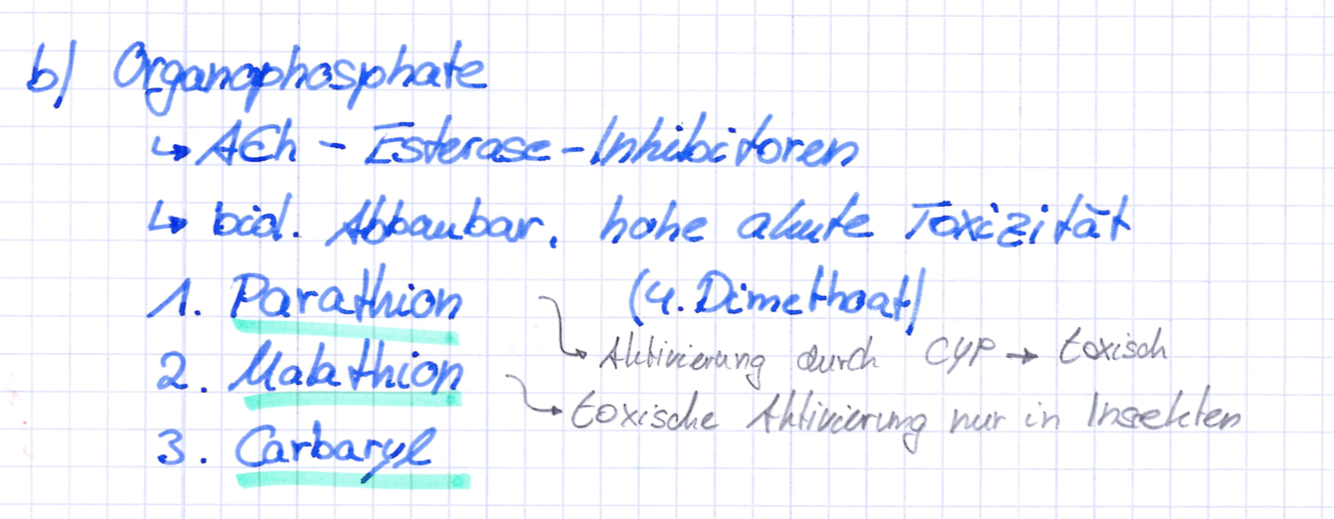 b) Organophosphate
↳ ACh - Esterase-Inhibitoren
↳ biol. Abbaubar, hohe akute Toxizität
1. Parathion (4. Dimethoat)
↳ Aktivierung durch CYP → toxisch
2. Malathion
↳ toxische Aktivierung nur in Insekten
3. Carbaryl